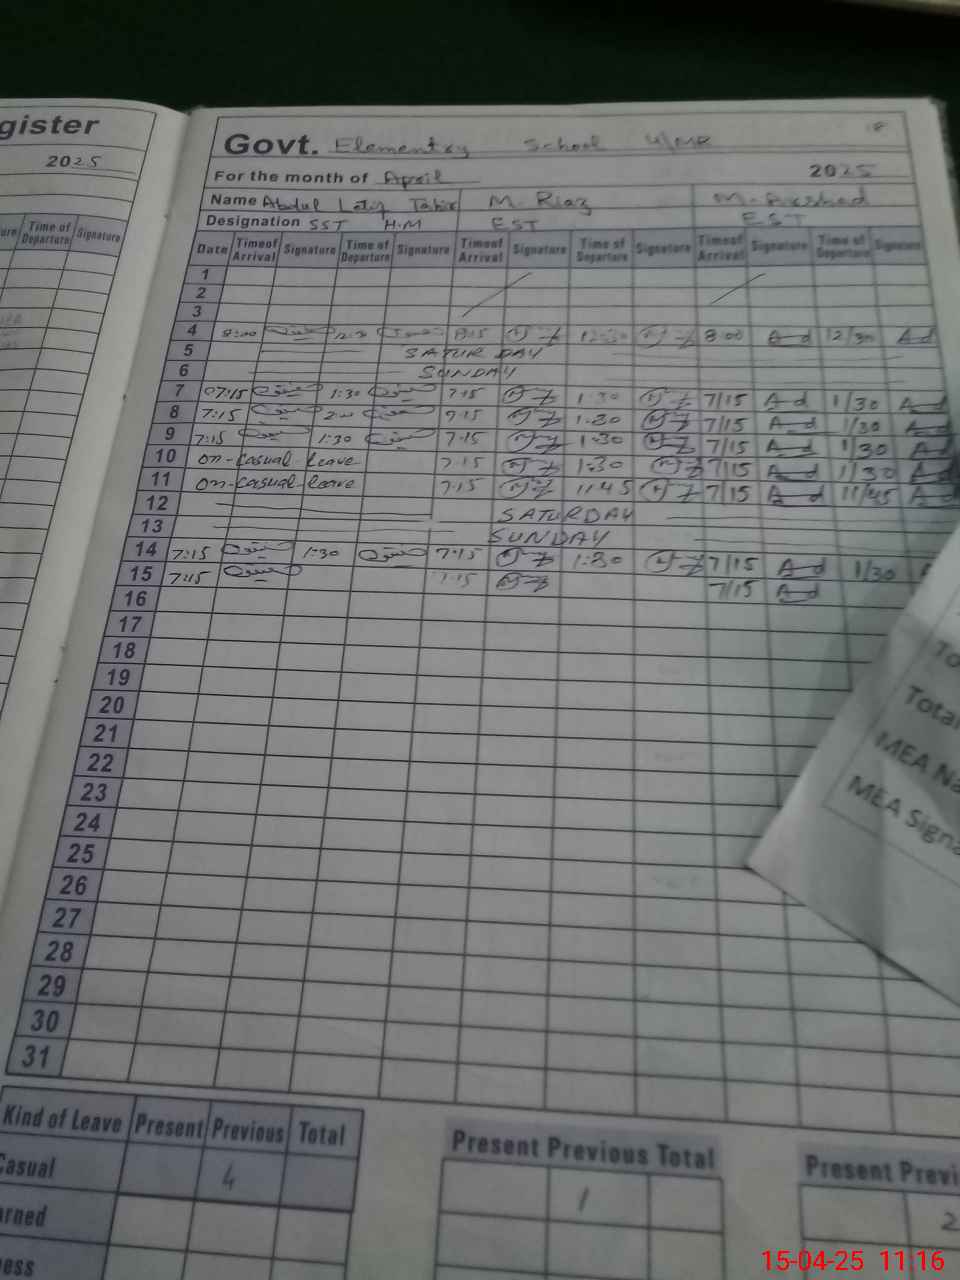 gister
2025
Time of Departure Signature
Govt. Elementry School 4/MR
18
For the month of April 2025
Name Abdul Latif Tahir M. Riaz M. Arshad
Designation SST H.M EST EST
Date Time of Arrival Signature Time of Departure Signature Time of Arrival Signature Time of Departure Signature Time of Arrival Signature Time of Departure Signature
1
2
3
4 8:00 12:30 8:15 12:30 8:00 A-d 12/30 A-d
5 SATURDAY
6 SUNDAY
7 07:15 1:30 7:15 1:30 7/15 A-d 1/30 A-d
8 7:15 2:00 7:15 1:30 7/15 A-d 1/30 A-d
9 7:15 1:30 7:15 1:30 7/15 A-d 1/30 A-d
10 on-casual-leave 7:15 1:30 7/15 A-d 1/30 A-d
11 on-casual-leave 7:15 11:45 7/15 A-d 11/45 A-d
12 SATURDAY
13 SUNDAY
14 7:15 1:30 7:15 1:30 7/15 A-d 1/30
15 7:15 7:15 7/15 A-d
16
17
18
19
20
21
22
23
24
25
26
27
28
29
30
31
To
Total
MEA Na
MEA Signa
Kind of Leave Present Previous Total
Casual 4
arned
ness
Present Previous Total
1
Present Previ
2
15-04-25 11:16